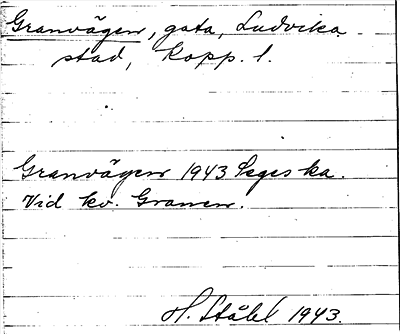 Granvägen, gata, Ludvika
stad, Kopp. l.
Granvägen 1943
Vid kv. Granen.
H. Ståhl 1943.